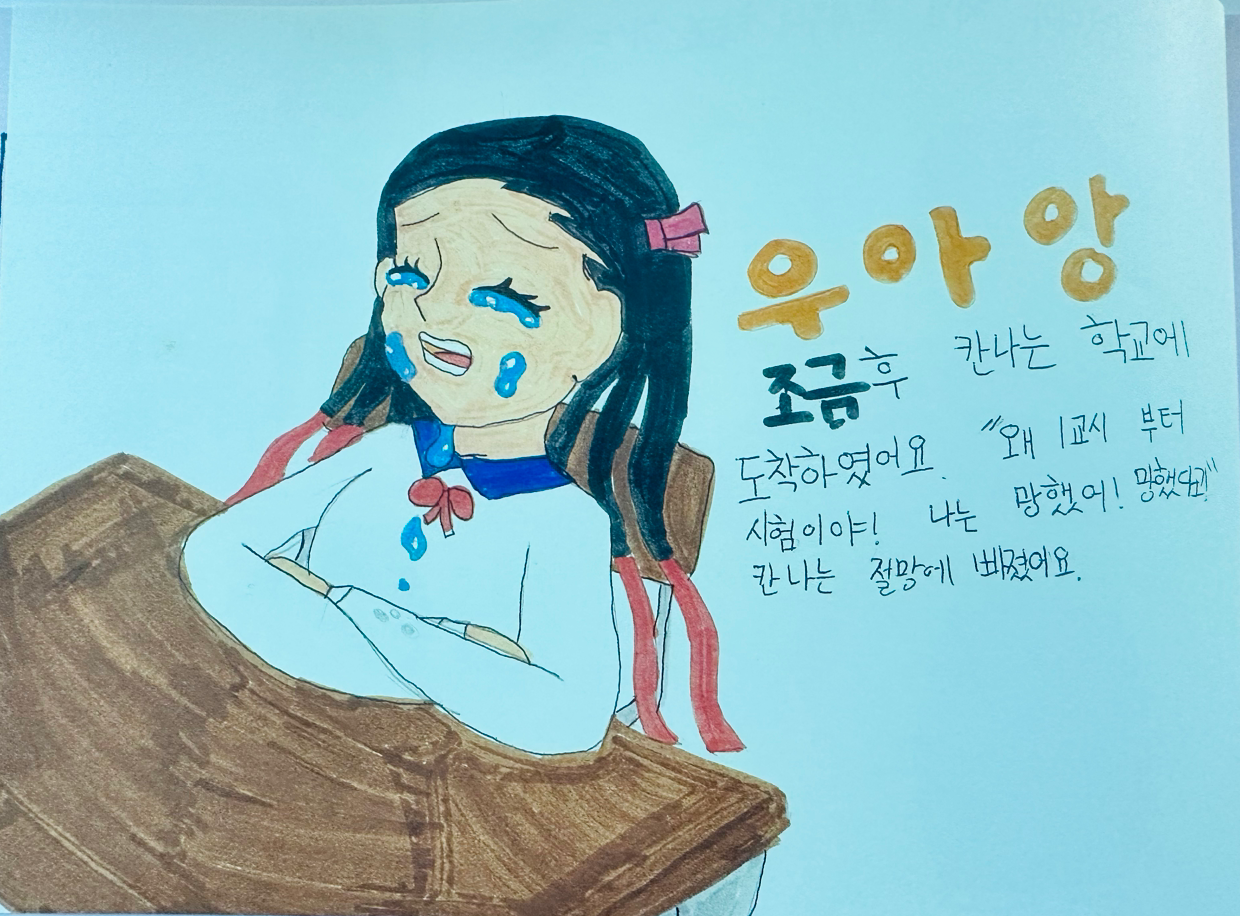 우아앙
조금후 칸나는 학교에
도착하였어요. "왜 1교시 부터
시험이야! 나는 망했어! 망했다고!"
칸나는 절망에 빠졌어요.